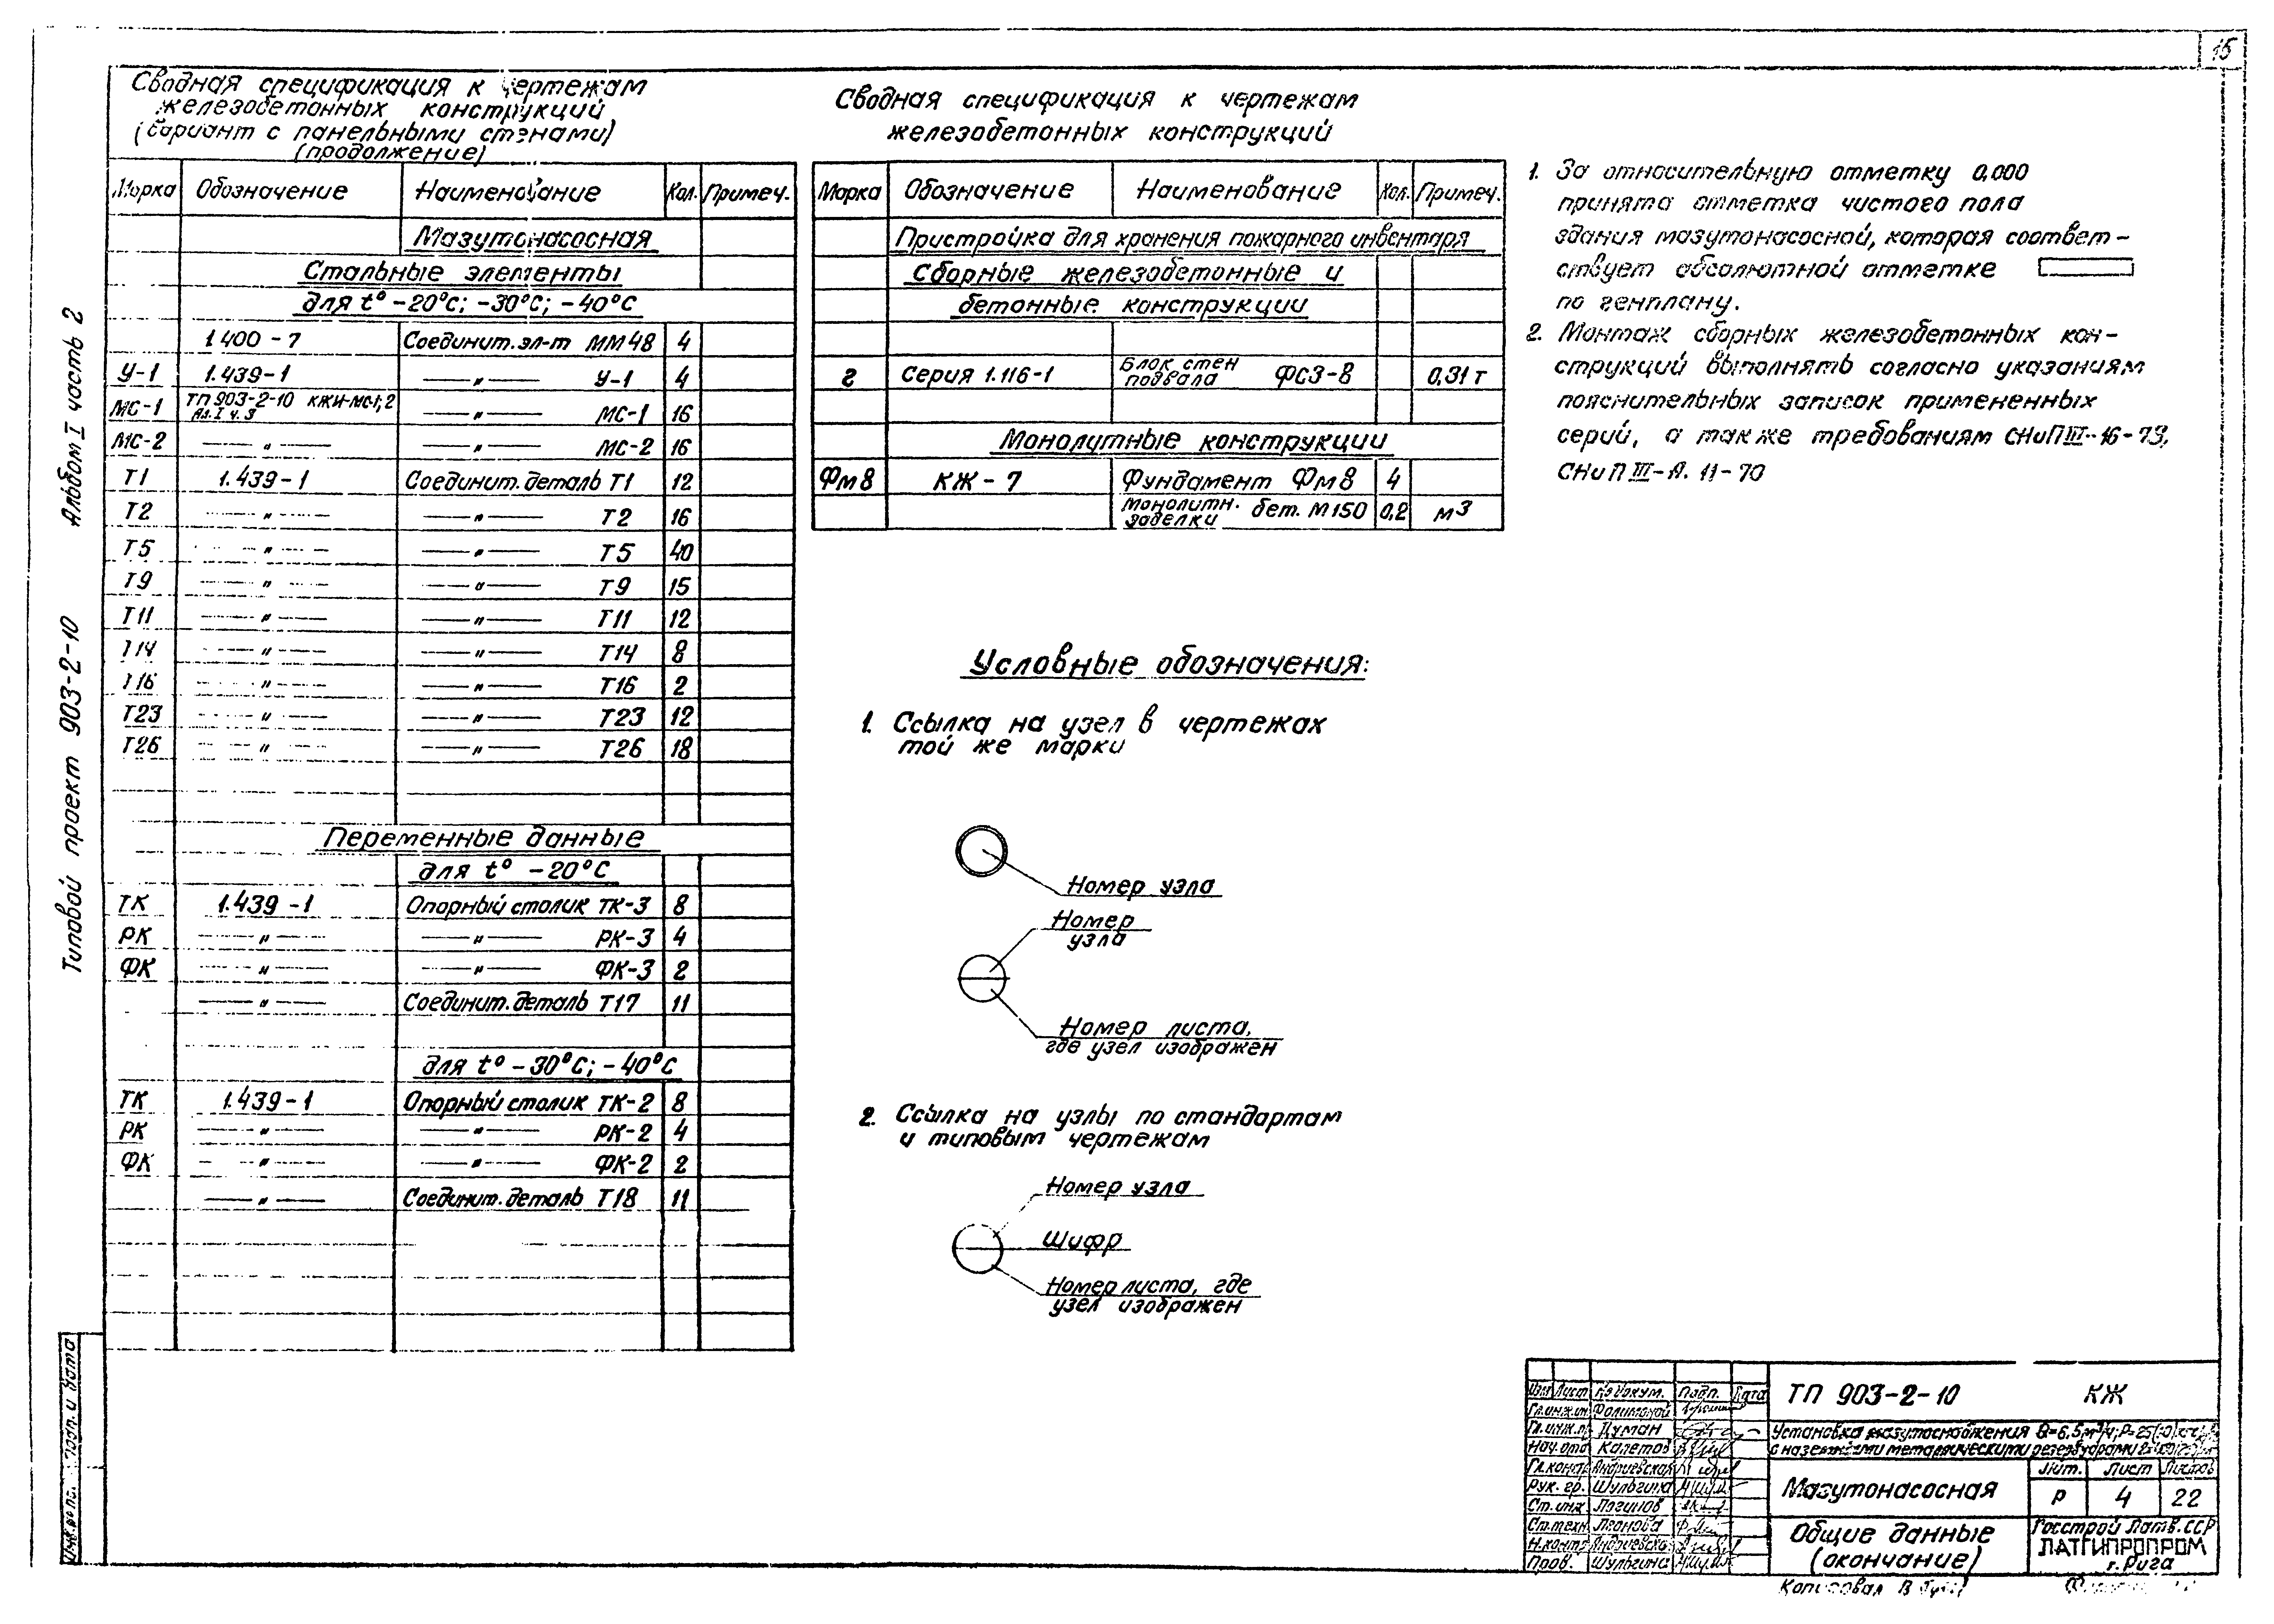 15
Сводная спецификация к чертежам
железобетонных конструкций
(вариант с панельными стенами)
(продолжение)
Марка Обозначение Наименование Кол. Примеч.
Мазутонасосная
Стальные элементы
для t° -20°С; -30°С; -40°С
1.400-7 Соединит. эл-т ММ48 4
У-1 1.439-1 —〃— У-1 4
МС-1 ТП 903-2-10 КЖИ-МС-1;2 Ал. I ч. 3 —〃— МС-1 16
МС-2 —〃— —〃— МС-2 16
Т1 1.439-1 Соединит. деталь Т1 12
Т2 —〃— —〃— Т2 16
Т5 —〃— —〃— Т5 40
Т9 —〃— —〃— Т9 15
Т11 —〃— —〃— Т11 12
Т14 —〃— —〃— Т14 8
Т16 —〃— —〃— Т16 2
Т23 —〃— —〃— Т23 12
Т26 —〃— —〃— Т26 18
Переменные данные
для t° -20°С
ТК 1.439-1 Опорный столик ТК-3 8
РК —〃— —〃— РК-3 4
ФК —〃— —〃— ФК-3 2
—〃— Соединит. деталь Т17 11
для t° -30°С; -40°С
ТК 1.439-1 Опорный столик ТК-2 8
РК —〃— —〃— РК-2 4
ФК —〃— —〃— ФК-2 2
—〃— Соединит. деталь Т18 11
Сводная спецификация к чертежам
железобетонных конструкций
Марка Обозначение Наименование Кол. Примеч.
Пристройка для хранения пожарного инвентаря
Сборные железобетонные и
бетонные конструкции
г Серия 1.116-1 Блок стен подвала ФС3-8 0,31т
Монолитные конструкции
Фм8 КЖ-7 Фундамент Фм8 4
Монолитн. заделки бет. М150 0,2 м3
Условные обозначения:
1. Ссылка на узел в чертежах
той же марки
Номер узла
Номер
узла
Номер листа,
где узел изображен
2. Ссылка на узлы по стандартам
и типовым чертежам
Номер узла
Шифр
Номер листа, где
узел изображен
1. За относительную отметку 0,000
принята отметка чистого пола
здания мазутонасосной, которая соответ-
ствует абсолютной отметке
по генплану.
2. Монтаж сборных железобетонных кон-
струкций выполнять согласно указаниям
пояснительных записок примененных
серий, а также требованиям СНиП III-16-73,
СНиП III-А. 11-70
Типовой проект 903-2-10 Альбом I часть 2
Инв. № подл. Подп. и дата
Изм Лист № докум. Подп. Дата
Гл. инж. пр. Думан
Нач. отд. Калетов
Гл. констр Андриевская
Рук. гр. Шульгина
Ст. инж. Логинов
Ст. техн. Леонова
Н. контр Андриевска
Пров. Шульгина
ТП 903-2-10 КЖ
Установка мазутоснабжения Q=6,5м³/ч;
с наземными металлическими резервуарами
Мазутонасосная
Лит. Лист Листов
Р 4 22
Общие данные
(окончание)
Госстрой Латв. ССР
ЛАТГИПРОПРОМ
г. Рига
Копировал